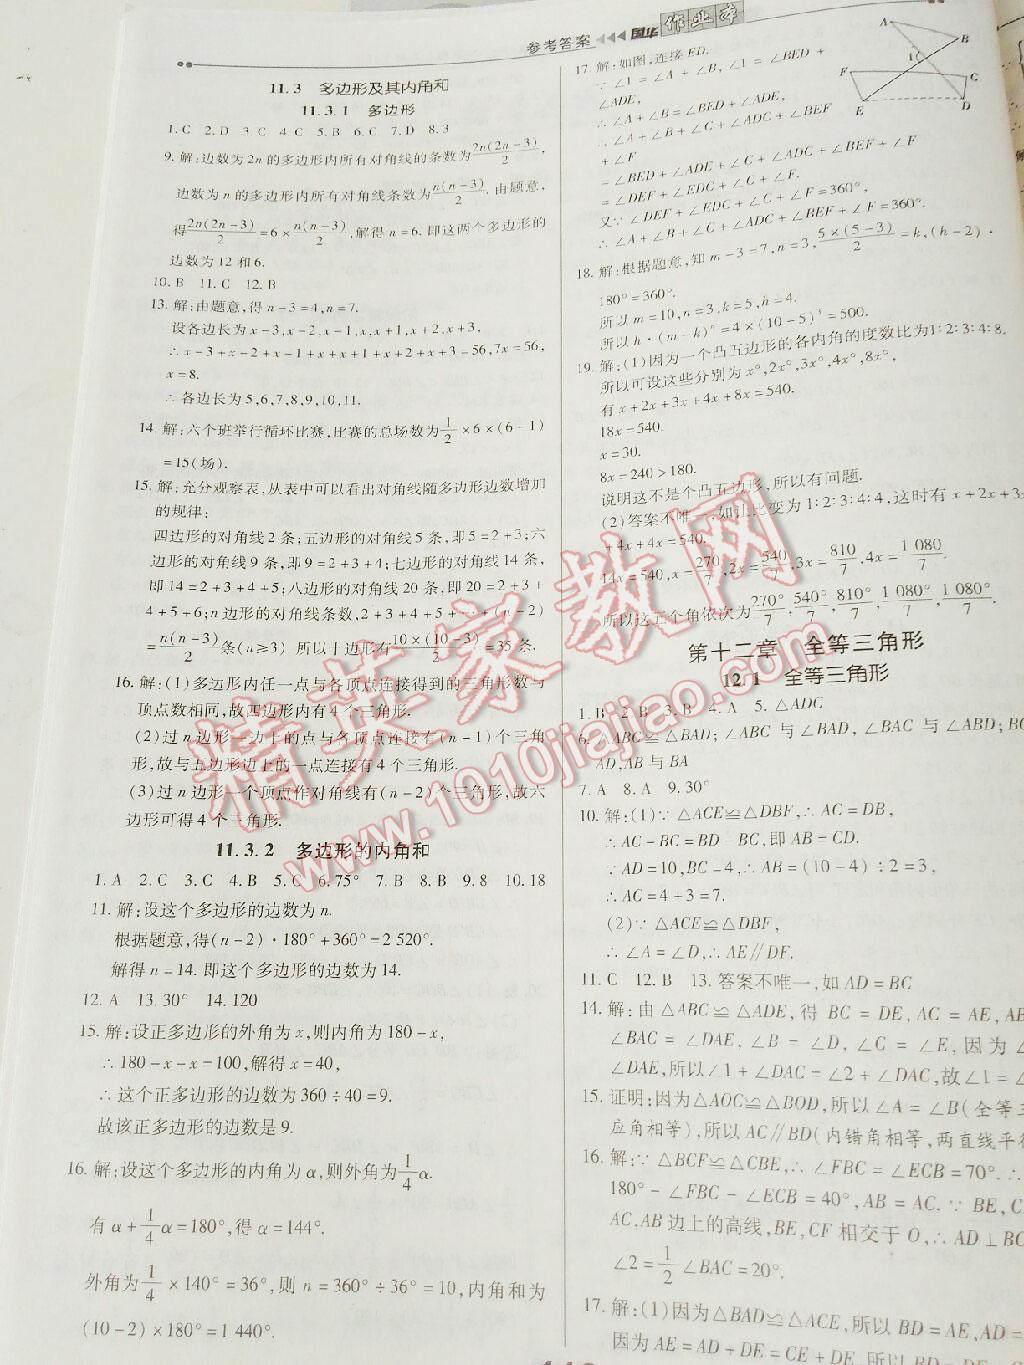 参考答案 国华 作业本
11.3 多边形及其内角和
11.3.1 多边形
1.C 2.D 3.C 4.C 5.B 6.C 7.D 8.3
9.解:边数为2n的多边形内所有对角线的条数为2n(2n-3)/2,
边数为n的多边形内所有对角线条数为n(n-3)/2.由题意,
得2n(2n-3)/2=6×n(n-3)/2,解得n=6.即这两个多边形的
边数为12和6.
10.B 11.C 12.B
13.解:由题意,得n-3=4,n=7.
设各边长为x-3,x-2,x-1,x,x+1,x+2,x+3,
∴x-3+x-2+x-1+x+x+1+x+2+x+3=56,7x=56,
x=8.
∴各边长为5,6,7,8,9,10,11.
14.解:六个班举行循环比赛,比赛的总场数为1/2×6×(6-1)
=15(场).
15.解:充分观察表,从表中可以看出对角线随多边形边数增加
的规律:
四边形的对角线2条;五边形的对角线5条,即5=2+3;六
边形的对角线9条,即9=2+3+4;七边形的对角线14条,
即14=2+3+4+5;八边形的对角线20条,即20=2+3+
4+5+6;n边形的对角线条数,2+3+4+5+…+(n-2)
=n(n-3)/2条(n≥3) 所以十边形有10×(10-3)/2=35条.
16.解:(1)多边形内任一点与各顶点连接得到的三角形数与
顶点数相同,故四边形内有4个三角形.
(2)过n边形一边上的点与各顶点连接有(n-1)个三角
形,故与五边形边上的一点连接有4个三角形.
(3)过n边形一个顶点作对角线有(n-2)个三角形,故六
边形可得4个三角形.
11.3.2 多边形的内角和
1.A 2.C 3.C 4.B 5.C 6.75° 7.B 8.B 9.8 10.18
11.解:设这个多边形的边数为n.
根据题意,得(n-2)·180°+360°=2 520°.
解得n=14.即这个多边形的边数为14.
12.A 13.30° 14.120
15.解:设正多边形的外角为x,则内角为180-x,
∴180-x-x=100,解得x=40,
∴这个正多边形的边数为360÷40=9.
故该正多边形的边数是9.
16.解:设这个多边形的内角为α,则外角为1/4α.
有α+1/4α=180°,得α=144°.
外角为1/4×140°=36°,则n=360°÷36°=10,内角和为
(10-2)×180°=1 440°.
17.解:如图,连接ED.
∵∠1=∠A+∠B,∠1=∠BED+
∠ADE,
∴∠A+∠B=∠BED+∠ADE,
∴∠A+∠B+∠C+∠ADC+∠BEF
+∠F
=∠BED+∠ADE+∠C+∠ADC+∠BEF+∠F
=∠DEF+∠EDC+∠C+∠F.
又∵∠DEF+∠EDC+∠C+∠F=360°,
∴∠A+∠B+∠C+∠ADC+∠BEF+∠F=360°.
A
B
1
F
C
E
D
18.解:根据题意,知m-3=7,n=3,5×(5-3)/2=k,(h-2)·
180°=360°.
所以m=10,n=3,k=5,h=4.
所以h·(m-k)ⁿ=4×(10-5)³=500.
19.解:(1)因为一个凸五边形的各内角的度数比为1:2:3:4:8,
所以可设这些分别为x°,2x°,3x°,4x°,8x°,
有x+2x+3x+4x+8x=540.
18x=540.
x=30.
8x=240>180.
说明这不是个凸五边形,所以有问题.
(2)答案不唯一,如让比变为1:2:3:4:4,这时有x+2x+3x
+4x+4x=540.
14x=540,x=270/7,2x=540/7,3x=810/7,4x=1 080/7
所以这五个角依次为270°/7,540°/7,810°/7,1 080°/7,1 080°/7.
第十二章 全等三角形
12.1 全等三角形
1.B 2.B 3.B 4.A 5.△ADC
6.△ABC≌△BAD;∠ABC与∠BAD,∠BAC与∠ABD;BC
AD,AB与BA
7.A 8.A 9.30°
10.解:(1)∵△ACE≌△DBF,∴AC=DB,
∴AC-BC=BD-BC,即AB=CD.
∵AD=10,BC=4,∴AB=(10-4)÷2=3,
∴AC=4+3=7.
(2)∵△ACE≌△DBF,
∴∠A=∠D,∴AE∥DF.
11.C 12.B 13.答案不唯一,如AD=BC
14.解:由△ABC≌△ADE,得BC=DE,AC=AE,AB
∠BAC=∠DAE,∠B=∠D,∠C=∠E,因为∠
∠DAE,所以∠1+∠DAC=∠2+∠DAC,故∠1=∠
15.证明:因为△AOC≌△BOD,所以∠A=∠B(全等三
应角相等),所以AC∥BD(内错角相等,两直线平行
16.解:∵△BCF≌△CBE,∴∠FBC=∠ECB=70°.∴
180°-∠FBC-∠ECB=40°,AB=AC.∵BE,C
AC,AB边上的高线,BE,CF相交于O,∴AD⊥BC
∠2=1/2∠BAC=20°.
17.解:(1)因为△BAD≌△ACE,所以BD=AE,AD=
因为AE=AD+DE=CE+DE,所以BD=
精英家教网
www.1010jiajiao.com